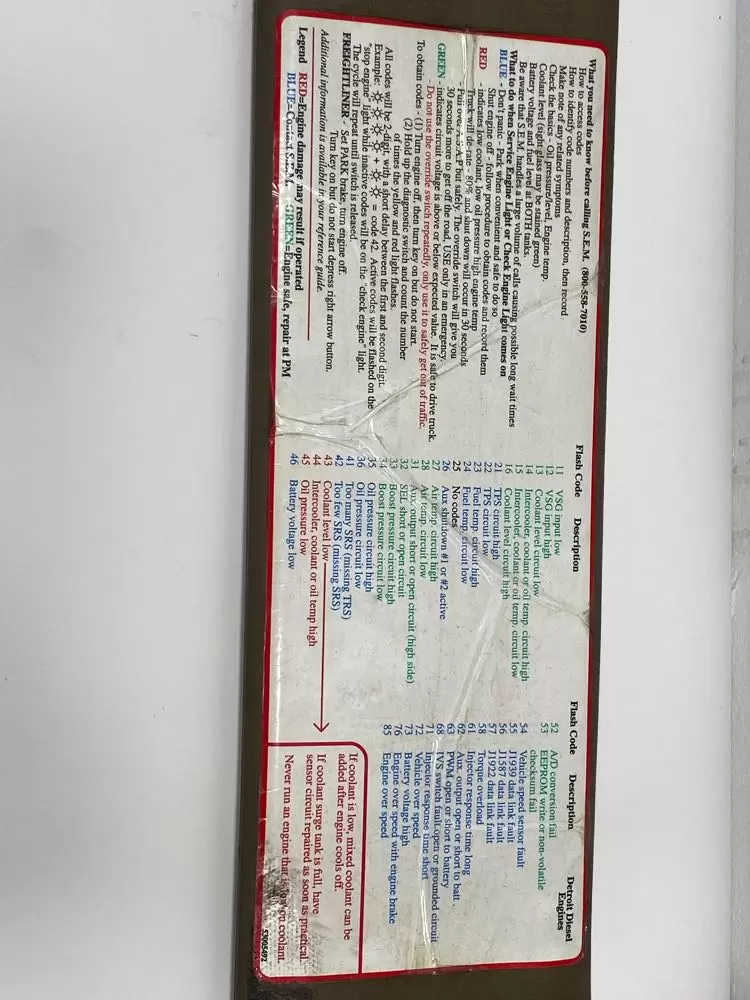 What you need to know before calling S.E.M. (800-553-7010)
How to access codes
How to identify code numbers and description, then record
Make note of any related symptoms
Check the basics - Oil pressure/level, Engine temp.
Coolant level (sight glass may be stained green)
Battery voltage and fuel level at BOTH tanks.
Be aware that S.E.M. handles a large volume of calls causing possible long wait times
What to do when Service Engine Light or Check Engine Light comes on
BLUE - Don't panic - Park when convenient and safe to do so
Shut engine off - follow procedure to obtain codes and record them
RED - indicates low coolant, low oil pressure high engine temp
Truck will de-rate - 80% and shut down will occur in 30 seconds
- Pull over A.S.A.P but safely. The override switch will give you
30 seconds more to get off the road. USE only in an emergency.
GREEN - indicates circuit voltage is above or below expected value. It is safe to drive truck.
- Do not use the override switch repeatedly, only use it to safely get out of traffic.
To obtain codes - (1) Turn engine off, then turn key on but do not start.
(2) Hold up the diagnostic switch and count the number
of times the yellow and red light flashes.
All codes will be 2-digit, with a short delay between the first and second digit.
Example: + = code 42. Active codes will be flashed on the
"stop engine" light while inactive codes will be on the "check engine" light.
The cycle will repeat until switch is released.
FREIGHTLINER - Set PARK brake, turn engine off.
Turn key on but do not start depress right arrow button.
Additional information is available in your reference guide.
Legend RED=Engine damage may result if operated
BLUE=Contact S.E.M. GREEN=Engine safe, repair at PM
Flash Code Description
11 VSG input low
12 VSG input high
13 Coolant level circuit low
14 Intercooler, coolant or oil temp. circuit high
15 Intercooler, coolant or oil temp. circuit low
16 Coolant level circuit high
21 TPS circuit high
22 TPS circuit low
23 Fuel temp. circuit high
24 Fuel temp. circuit low
25 No codes
26 Aux shutdown #1 or #2 active
27 Air temp. circuit high
28 Air temp. circuit low
31 Aux. output short or open circuit (high side)
32 SEL short or open circuit
33 Boost pressure circuit high
34 Boost pressure circuit low
35 Oil pressure circuit high
36 Oil pressure circuit low
41 Too many SRS (missing TRS)
42 Too few SRS (missing SRS)
43 Coolant level low
44 Intercooler, coolant or oil temp high
45 Oil pressure low
46 Battery voltage low
Flash Code Description Detroit Diesel
Engines
52 A/D conversion fail
53 EEPROM write or non-volatile
checksum fail
54 Vehicle speed sensor fault
55 J1939 data link fault
56 J1587 data link fault
57 J1922 data link fault
58 Torque overload
61 Injector response time long
62 Aux. output open or short to batt
63 PWM open or short to battery
68 IVS switch fault,open or grounded circuit
71 Injector response time short
72 Vehicle over speed
73 Battery voltage high
76 Engine over speed with engine brake
85 Engine over speed
If coolant is low, mixed coolant can be
added after engine cools off.
If coolant surge tank is full, have
sensor circuit repaired as soon as practical.
Never run an engine that is low on coolant.
53005492